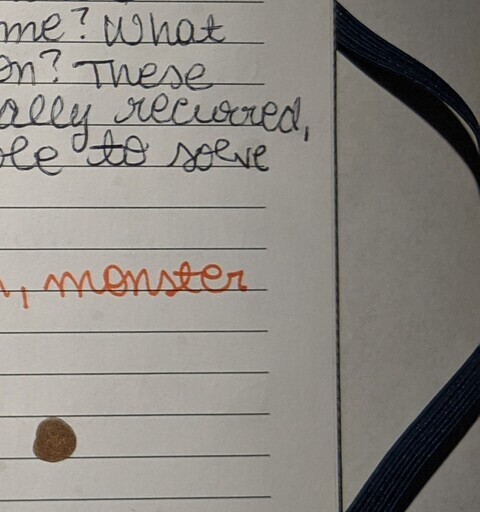 me? What
on? These
ally recurred,
ble to solve
, monster